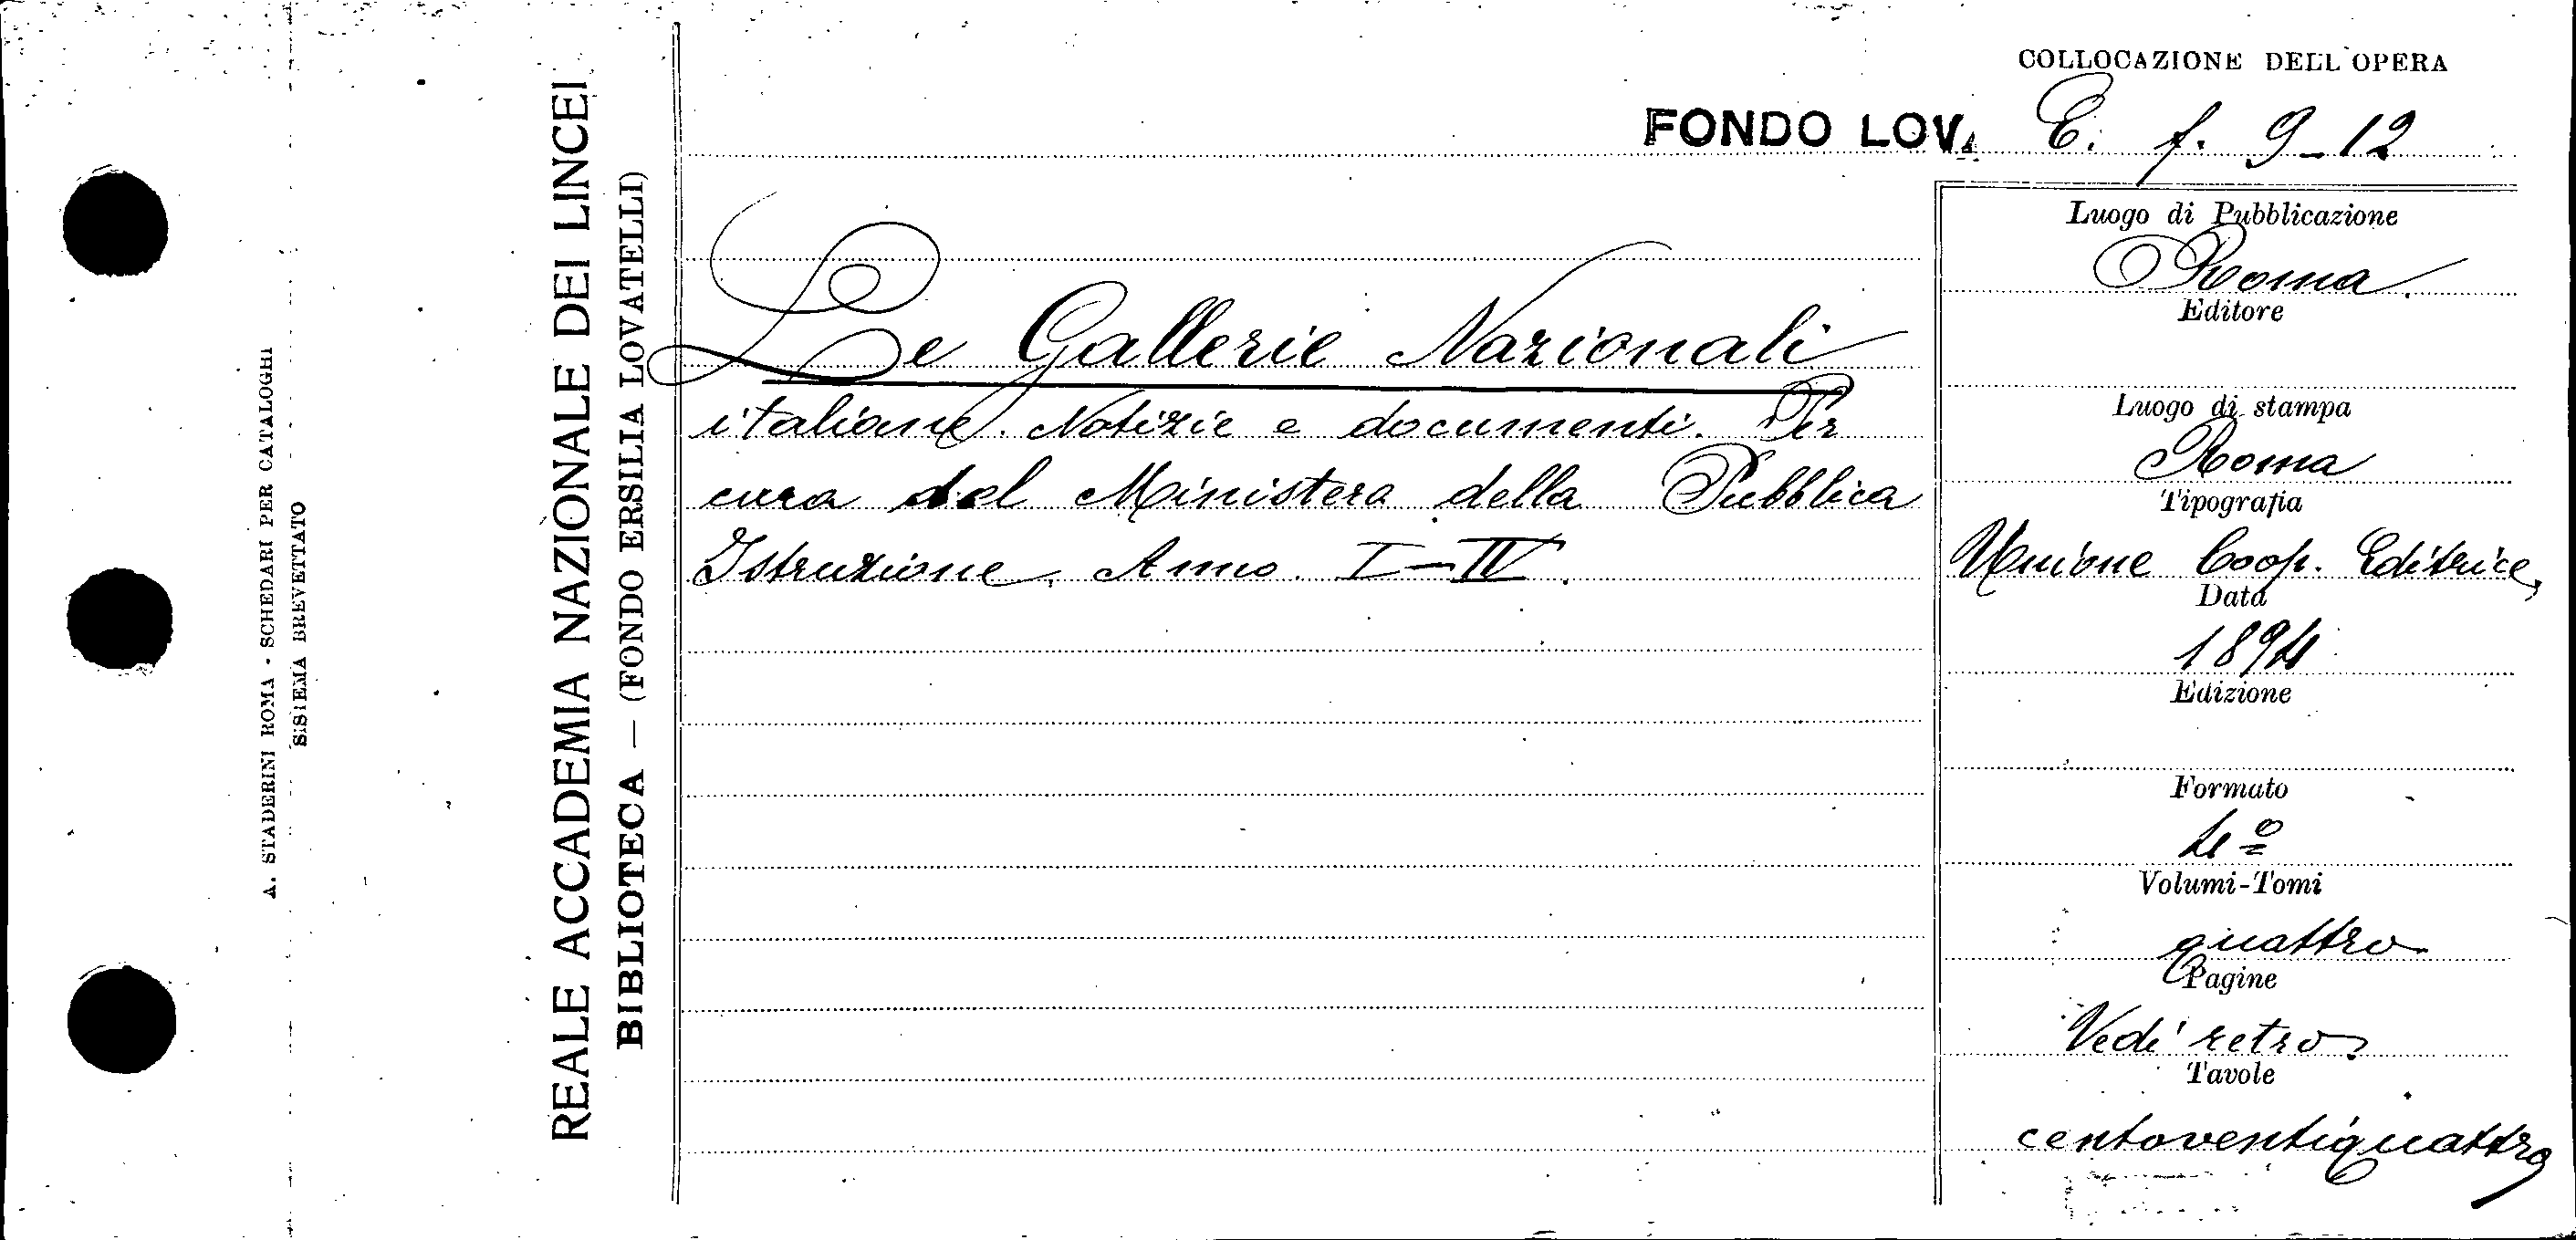 A. STADERINI ROMA - SCHEDARI PER CATALOGHI
SISTEMA BREVETTATO
REALE ACCADEMIA NAZIONALE DEI LINCEI
BIBLIOTECA — (FONDO ERSILIA LOVATELLI)
COLLOCAZIONE DELL'OPERA
FONDO LOV. E. f. 9-12
Le Gallerie Nazionali
italiane. Notizie e documenti. Per
cura del Ministero della Pubblica
Istruzione. Anno I-IV.
Luogo di Pubblicazione
Roma.
Editore
Luogo di stampa
Roma
Tipografia
Unione Coop. Editrice,
Data
1894
Edizione
Formato
4º
Volumi-Tomi
quattro
Pagine
Vedi retro
Tavole
centoventiquattro